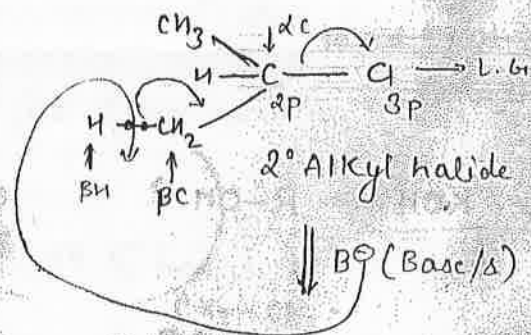 CH3 ↓αC
H — C — Cl → L.G
2p 3p
H — CH2
↑ ↑ 2° Alkyl halide
βH βC
B⊖ (Base/s)